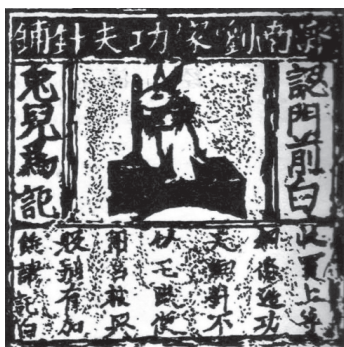 濟南劉家功夫針鋪
認門前白
兔兒爲記
收買上等
鋼條造功
夫細針不
使
用
別有加
饒請記白